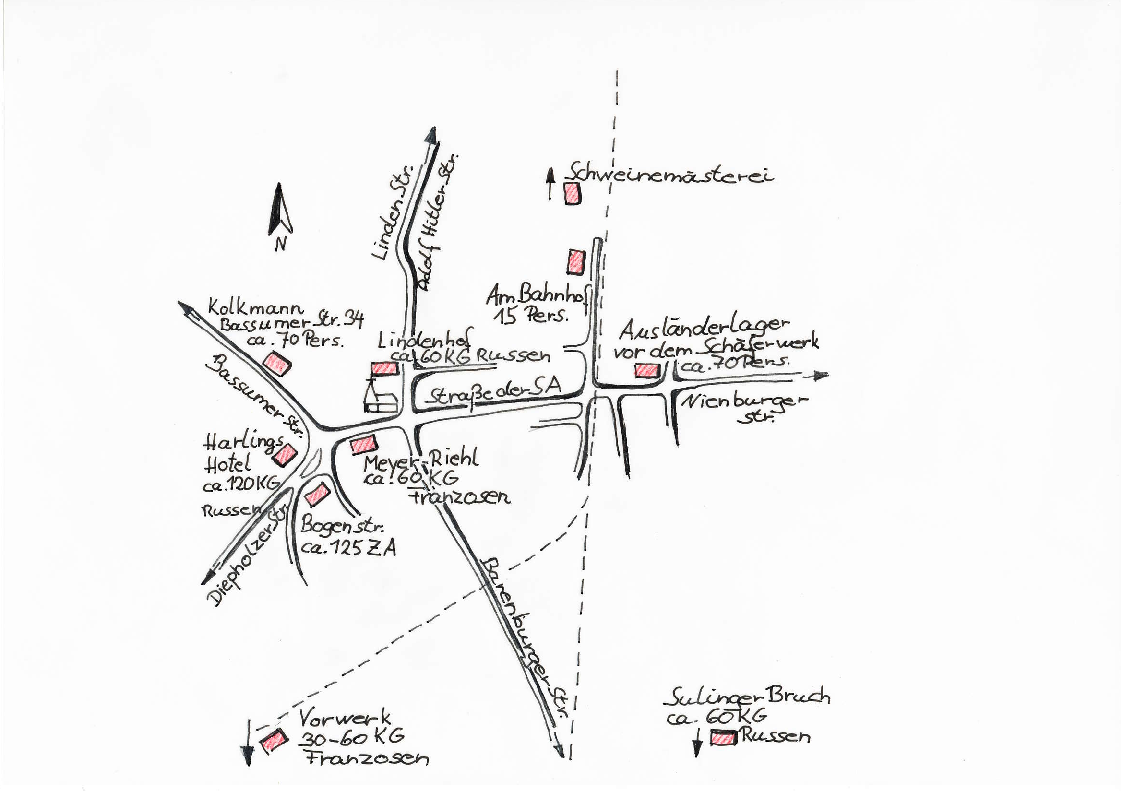 Schweinemästerei
Linden Str.
Adolf Hitler Str.
N
Am Bahnhof
15 Pers.
Kolkmann
Bassumer Str. 34
ca. 70 Pers.
Lindenhof
ca. 60 KG Russen
Ausländerlager
vor dem Schäferwerk
ca. 70 Pers.
Bassumer Str.
Straße der SA
Nienburger
str.
Harlings
Hotel
ca. 120 KG
Russen
Meyer-Riehl
ca. 60 KG
Franzosen
Diepholzer Str.
Bogenstr.
ca. 125 ZA
Barenburger Str.
Vorwerk
30-60 KG
Franzosen
Sulinger Bruch
ca. 60 KG
Russen